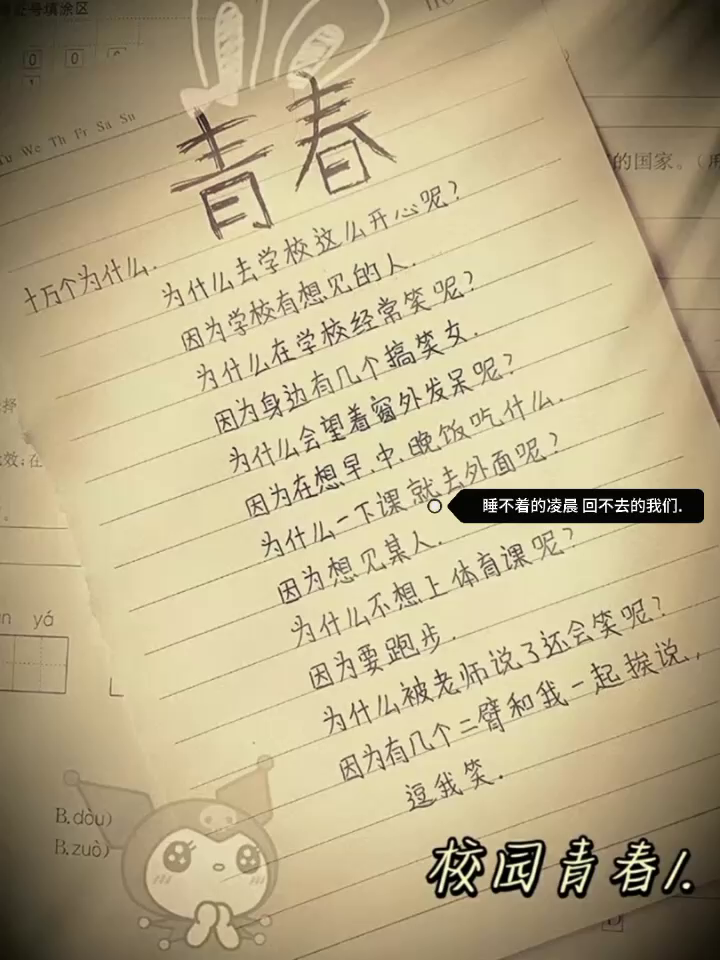 证号填涂区
0 0
Tu We Th Fr Sa Su
青春
的国家。(用
十万个为什么.
为什么去学校这么开心呢?
因为学校有想见的人.
为什么在学校经常笑呢?
因为身边有几个搞笑女.
为什么会望着窗外发呆呢?
因为在想早.中.晚饭吃什么.
为什么一下课就去外面呢?
睡不着的凌晨 回不去的我们.
因为想见某人.
为什么不想上体育课呢?
因为要跑步.
为什么被老师说了还会笑呢?
因为有几个二臂和我一起挨说,
逗我笑.
择
效;在
yá
B.dòu)
B.zuò)
校园青春/.